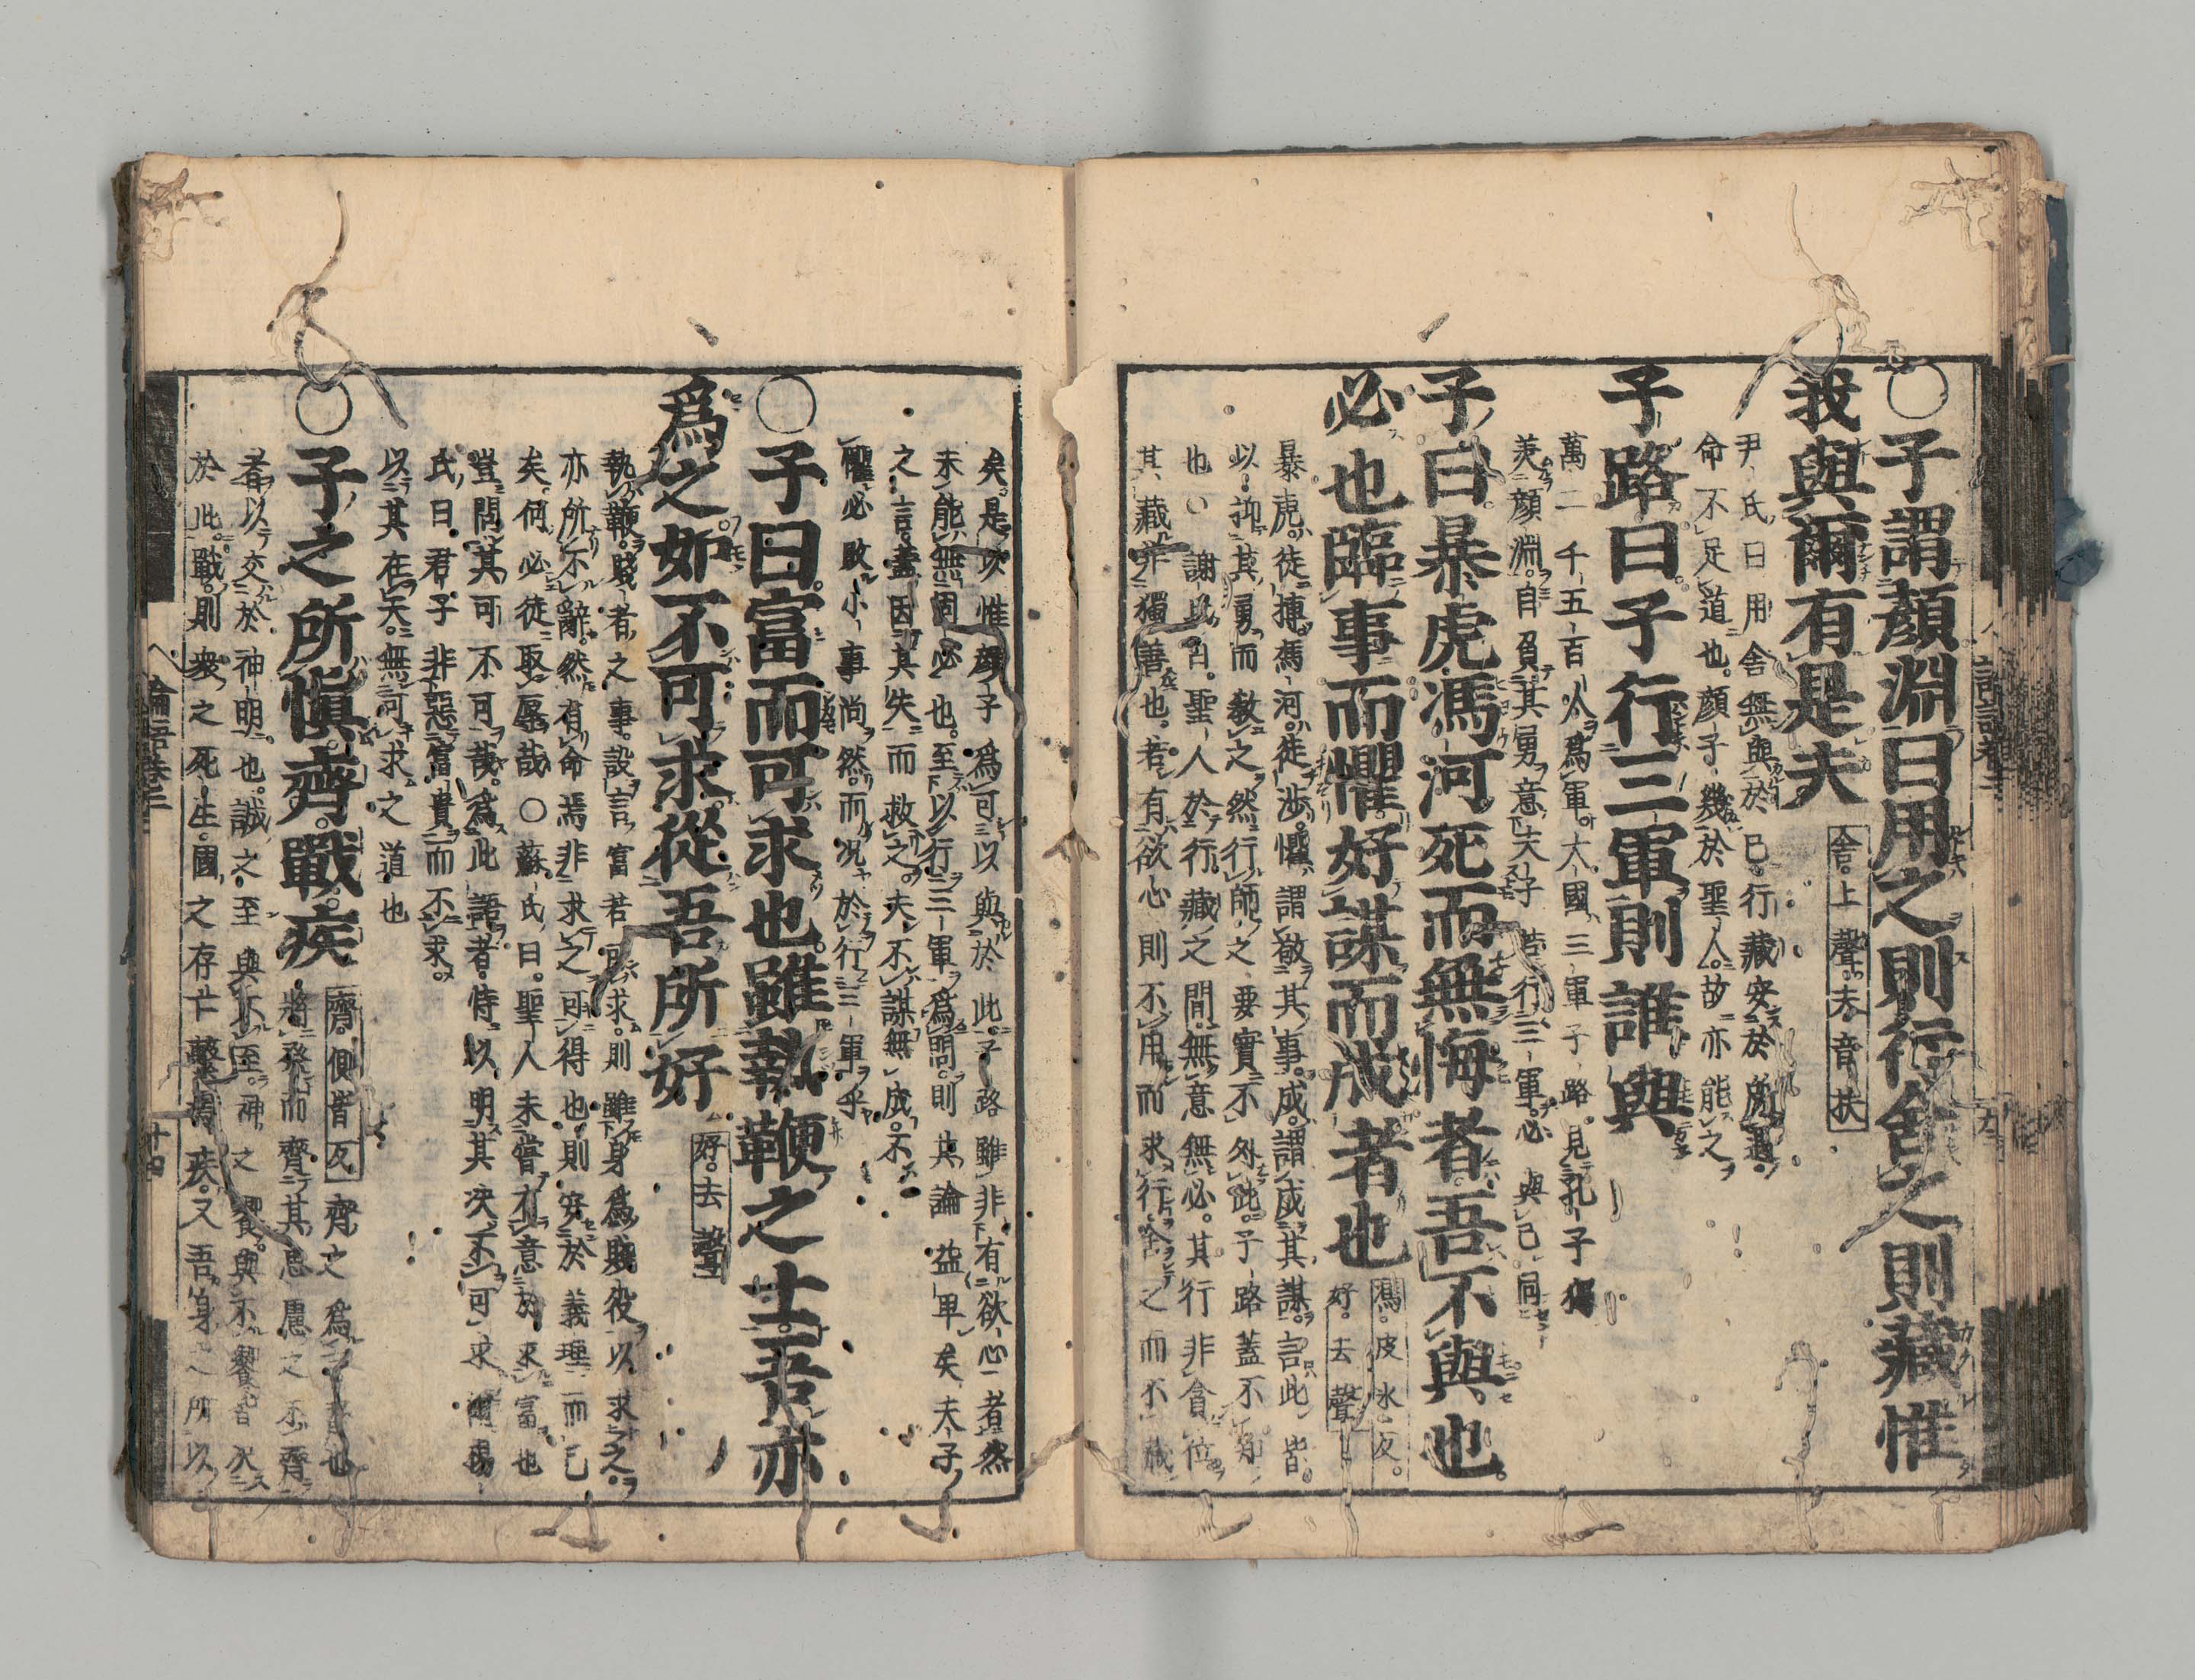 ○子謂顏淵曰用之則行舍之則藏惟
我與爾有是夫 舍。上聲。夫。音扶
尹氏曰用舍無與於已。行藏安於所遇。
命不足道也。顏子幾於聖人。故亦能之
子路曰子行三軍則誰與
萬二千五百人爲軍。大國三軍子路。見孔子獨
美顏淵。自負其勇意夫子若行三軍。必與己同
子曰暴虎馮河死而無悔者吾不與也。
必也臨事而懼好謀而成者也 馮。皮冰反。好。去聲
暴虎。徒搏。馮河。徒涉。懼謂敬其事。成。謂成其謀。言此皆。
以抑其勇而教之。然行師之要實不外此。子路蓋不知
也○謝氏曰。聖人於行藏之間。無意無必。其行非貪位。
其藏非獨善也。若有欲心則不用而求行。舍之而不藏
矣是以惟顏子爲可以與於此。子路雖非有欲心者然
未能無固必也。至以行三軍爲問。則其論益卑矣夫子
之言。蓋因其失而救之。夫不謀無成。不
懼必敗小事尚然。而況於行三軍乎
○子曰富而可求也雖執鞭之士吾亦
爲之如不可求從吾所好 好。去聲
執鞭。賤者之事。設言富若可求。則雖身爲賤役以求之。
亦所不辭。然有命焉非求之可得也。則安於義理而已
矣。何必徒取辱哉○蘇氏曰。聖人未嘗有意於求富也
豈問其可不可哉。爲此語者。特以明其决不可求爾楊
氏曰。君子非惡富貴而不求。
以其在天。無可求之道也
○子之所愼齊。戰。疾 齊。側皆反 齊之爲言齊也
將祭而齊其思慮之不齊
者以交於神明也。誠之至與不至。神之饗與不饗皆决
於此。戰。則衆之死生。國之存亡繫焉疾。又吾身之所以
論語卷三
十四